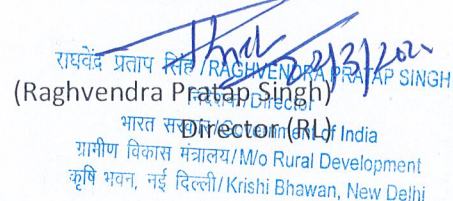 राघवेंद्र प्रताप सिंह/RAGHVENDRA PRATAP SINGH
(Raghvendra Pratap Singh)
निदेशक/Director
Director (RL)
भारत सरकार/Government of India
ग्रामीण विकास मंत्रालय/M/o Rural Development
कृषि भवन, नई दिल्ली/Krishi Bhawan, New Delhi